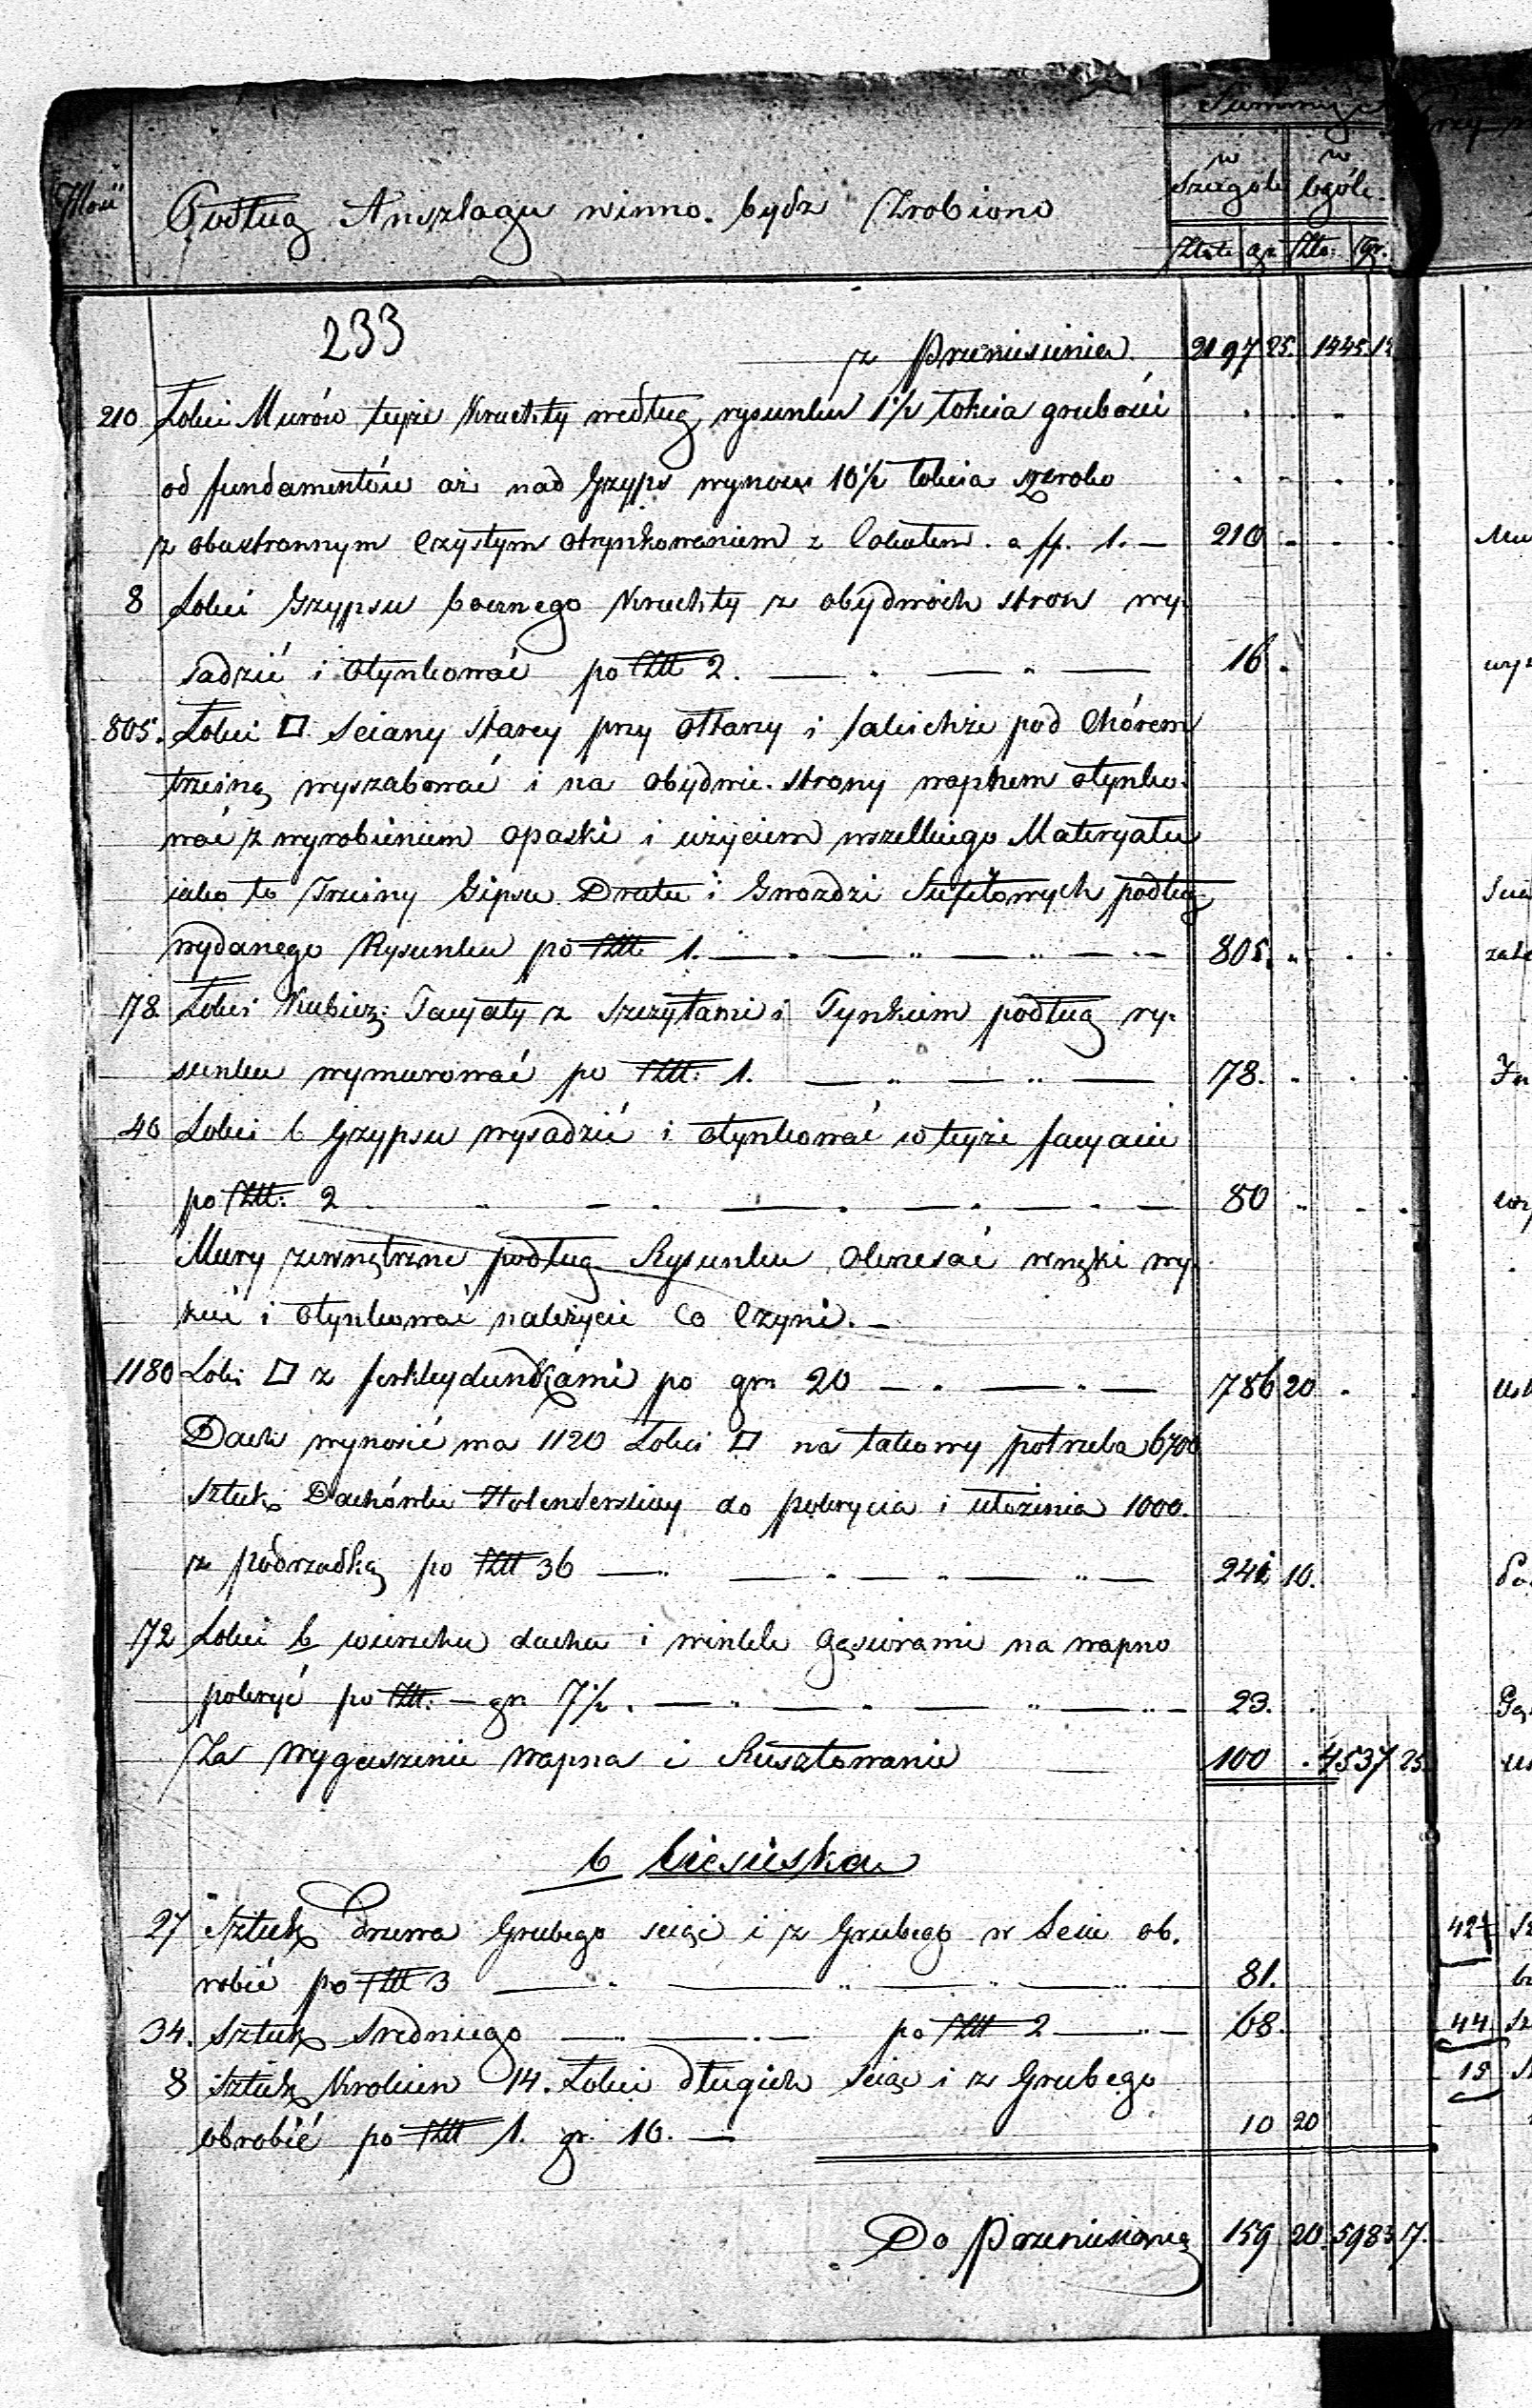 Summy
w Szczególe w ogóle
Ilość Podług Anszlagu winno bydź Zrobiono
Złote gr. Złto: gr.
233
z Przeniesienia 2197 25. 1445. 12
210 Łokci Murów tejże Kruchty według rysunku 1½ łokcia grubości
od fundamentów aż nad Gzyps wynosi 10½ łokcia szeroko
z obustronnym czystym otynkowaniem z a ff. 1. — 210
8 Łokci Gzypsu bocznego Kruchty z obydwóch stron wy-
sadzić i otynkować po Złł 2. — 16
805. Łokci □ Sciany starey przy Ołtarzy i także pod Chórem
trzciną wyszabować i na obydwie strony wapnem otynko-
wać z wyrobieniem opaski i użyciem wszelkiego Materyału
iako to Trzciny Gipsu Dratu i Gwoździ Sufitowych podług
wydanego Rysunku po Złł. 1. — 805.
78 Łokci Kubicz: Facyaty z Szczytami i Tynkiem podług ry-
sunku wymurować po Złł. 1. — 78.
40 Łokci b Gzypsu wysadzić i otynkować w teyże facyacie
po Złł: 2 — 80
Mury zewnętrzne podług Rysunku okrzesać wnęki wy-
kuć i otynkować należycie co czyni. —
1180 Łokci □ z ferkleydunkami po gr. 20 — 786 20
Dach wynosić ma 1120 Łokci □ na takowy potrzeba 6700
sztuk Dachówki Holenderskiey do pokrycia i ułożenia 1000.
z podrzadką po Złł 36 — 241 10.
172 Łokci b wierzchu dachu i winkle gąsiorami na wapno
pokryć po Złł. — gr 7½. — 23.
Za wygaszenie wapna i Rusztowanie — 100 . 4537 25.
b Ciesielska
27 Sztuk drzewa Grubego sciąć i z Grubego w Lesie ob-
robić po Złł 3 — 81.
34. Sztuk sredniego — po Złł 2 — 68.
8 Sztuk Krokien 14. Łokci długich sciąć i z Grubego
obrobić po Złł 1. gr. 10. — 10 20
Do Przeniesienia 159 20. 5983 7.
42
44
15